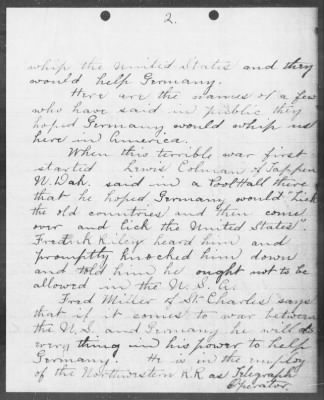 2.
whip the United States and they
would help Germany.
Here are the names of a few
who have said in public they
hoped Germany would whip us
here in America.
When this terrible war first
started Lewis Colman of Tappen
N. Dak. said in a Pool Hall there
that he hoped Germany would "Lick
the old countries and then come
over and lick the United States".
Fredrik Riley heard him and
promptly knocked him down
and told him he ought not to be
allowed in the U. S. A.
Fred Miller of St. Charles says
that if it comes to war between
the U.S. and Germany he will do
every thing in his power to help
Germany. He is in the employ
of the Northwestern R.R. as Telegraph
Operator.